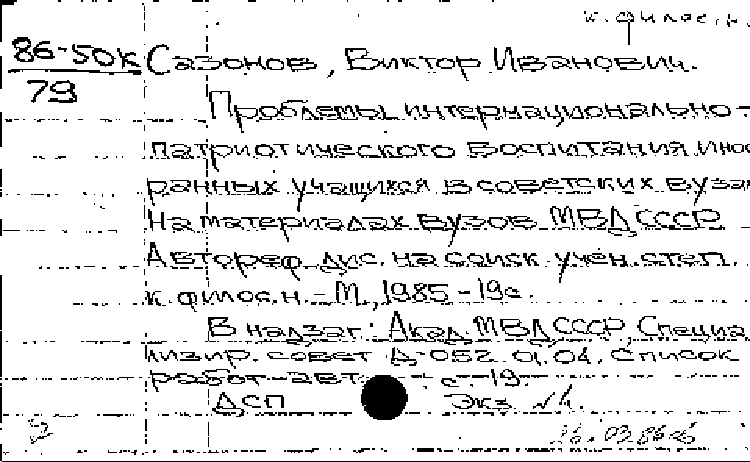 к. филос. н.
86-50к Сазонов, Виктор Иванович.
79
Проблемы интернационально-
патриотического воспитания инос
ранных учащихся в советских вузах
На материалах вузов МВД СССР
Автореф. дис. на соиск. учен. степ.
к. филос. н. - М., 1985 - 19с.
В надзаг.: Акад. МВД СССР, Специа
лизир. совет Д-052.01.04. Список
работ авт.: с. 19.
ДСП Экз. №
26.03.86